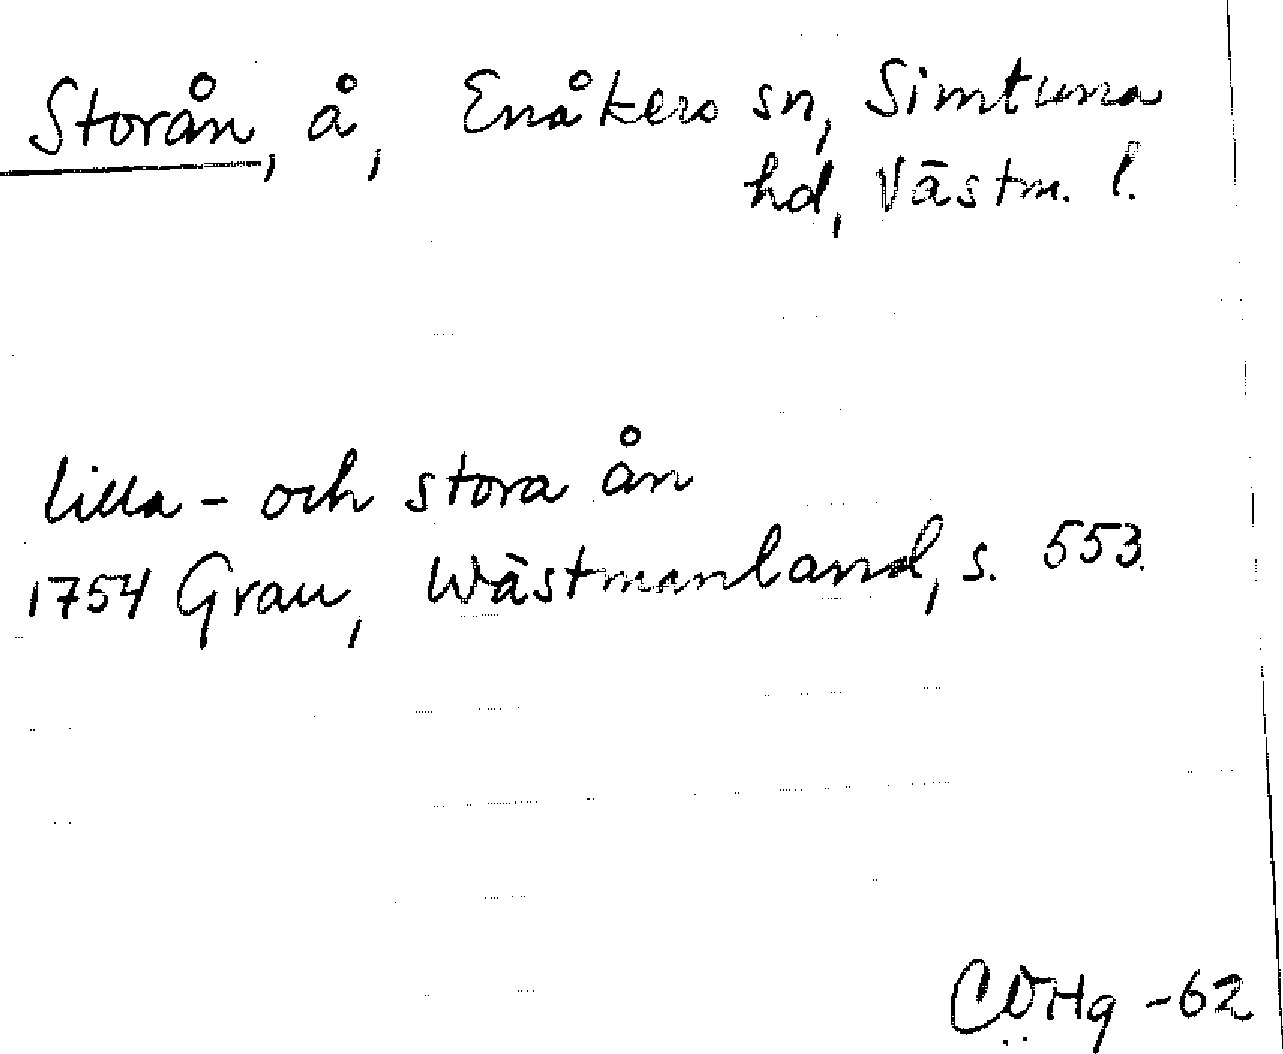 Storån, å, Enåkers sn, Simtuna
hd, Västm. l.
lilla - och stora ån
1754 Grau, Wästmanland, s. 553.
-62